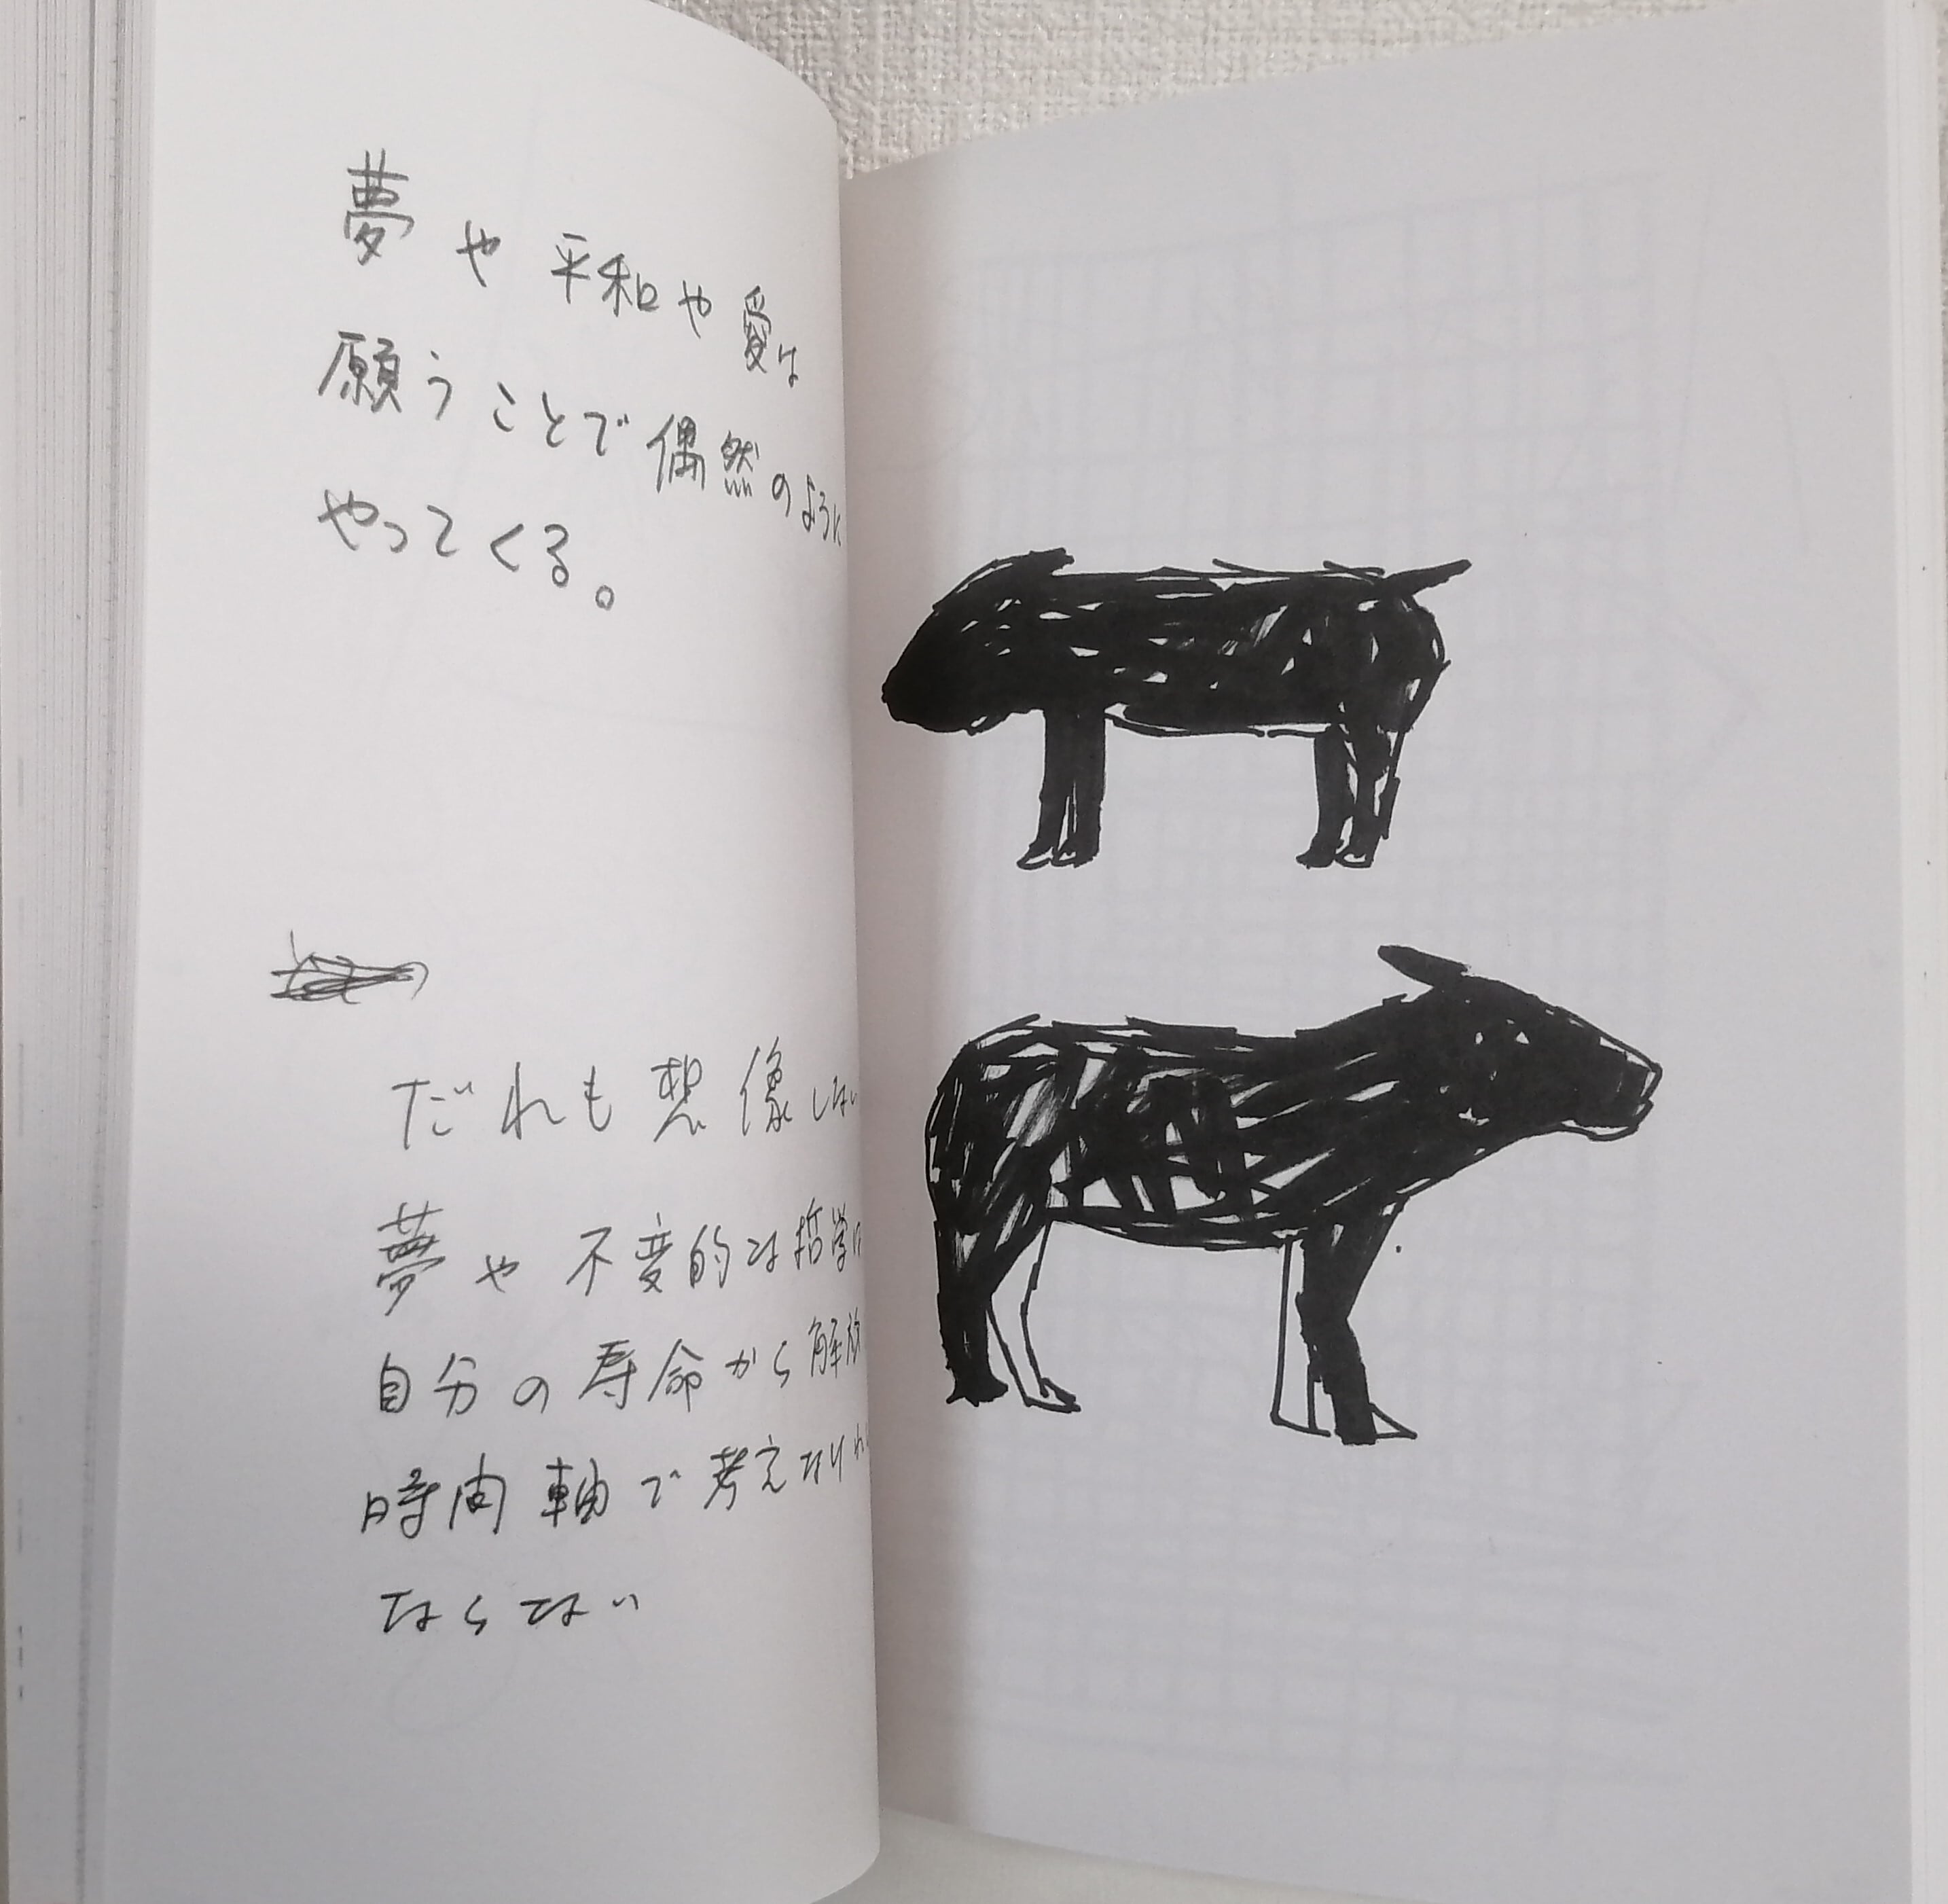 夢や平和や愛は
願うことで偶然のように
やってくる。
だれも想像しない
夢や不変的な哲学は
自分の寿命から解放
時間軸で考えなけれ
ならない